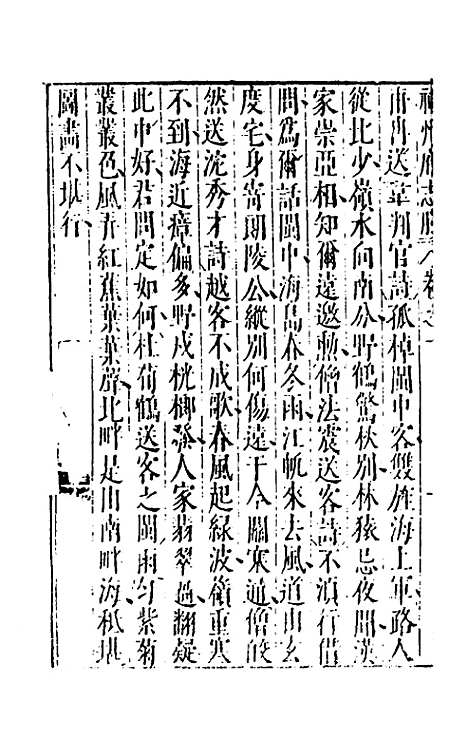 福州府志勝八卷之一
甫冉送韋判官詩孤棹閩中客雙旌海上軍路人
從比少嶺水向南分野鶴驚秋別林猿忌夜聞漢
家崇亞相知爾遠邀勳僧法震送客詩不滇行借
問爲爾話閩中海島春冬雨江帆來去風道由玄
度宅身寄朗陵公縱別何傷遠于今關塞通僧皎
然送沈秀才詩越客不成歌春風起綠波嶺重寒
不到海近瘴偏多野戍桄榔發人家翡翠過翻疑
此中好君問定如何杜荀鶴送客之閩雨勻紫菊
叢叢色風弄紅蕉葉葉聲北畔是山南畔海秪堪
圖畵不堪行